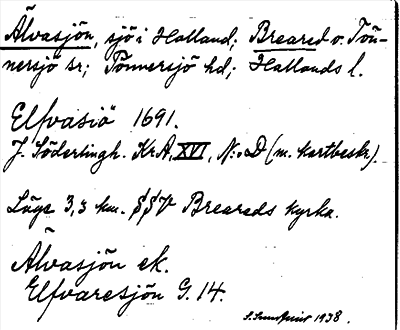 Älvasjön, sjö i Halland; Breared o. Tön-
nersjö sr; Tönnersjö hd; Hallands l.
Elfvasiö 1691.
J. Söderlingh. Kr.A, XVI, N:o D (m. kartbeskr).
Läge 3,3 km. SSV Breareds kyrka.
Älvasjön ek.
Elfvaresjön G. 14.
S. 1938.